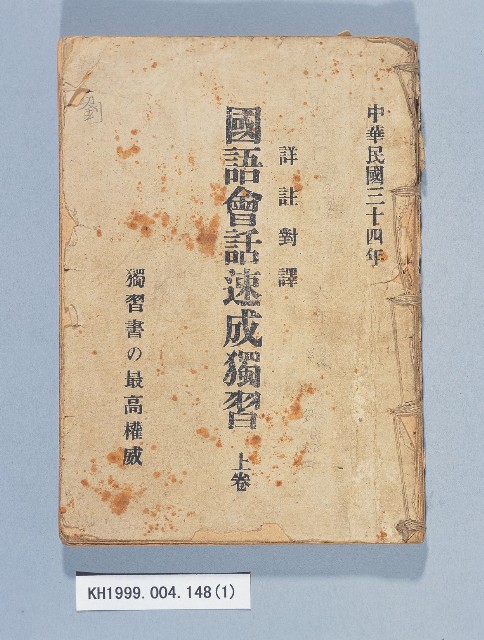 中華民國三十四年
詳註對譯
國語會話速成獨習 上卷
獨習書の最高權威
劉
KH1999.004.148(1)